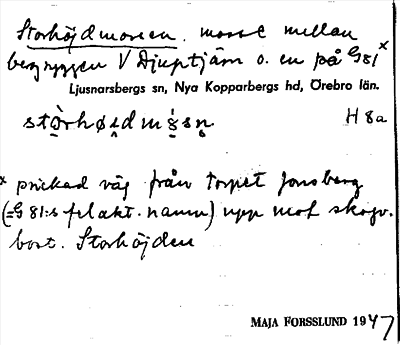 Storhöjdmossen. mosse mellan
bergryggen V Djuptjärn o. en på G81ˣ
Ljusnarsbergs sn, Nya Kopparbergs hd, Örebro län.
H 8a
x prickad väg från torpet Jonsberg
(=G 81:s felakt. namn) upp mot skogv.
bost. Storhöjden
MAJA FORSSLUND 1947